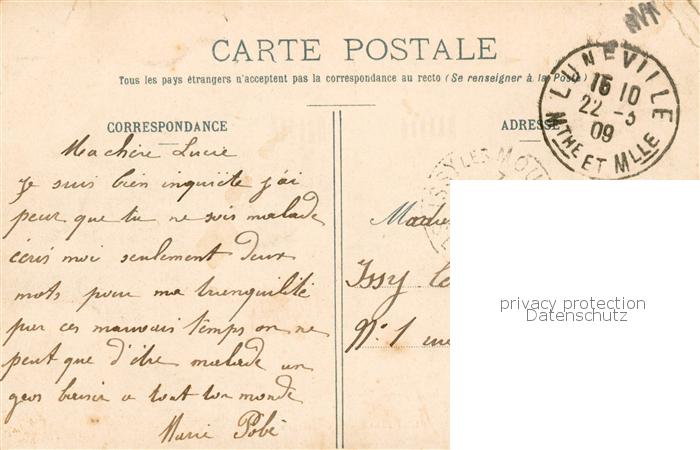 CARTE POSTALE
Tous les pays étrangers n'acceptent pas la correspondance au recto (Se renseigner à la Poste)
CORRESPONDANCE
ADRESSE
LUNEVILLE
15 10
22 - 3
09
MTHE ET MLLE
ISSY LES MOU
Ma chère Lucie
Je suis bien inquiète j'ai
peur que tu ne sois malade
écris moi seulement deux
mots pour ma trenquilité
par ces mauvais temps on ne
peut que d'être malade un
gros baiser a tout ton monde
Marie
Issy le
N° 1
privacy protection
Datenschutz